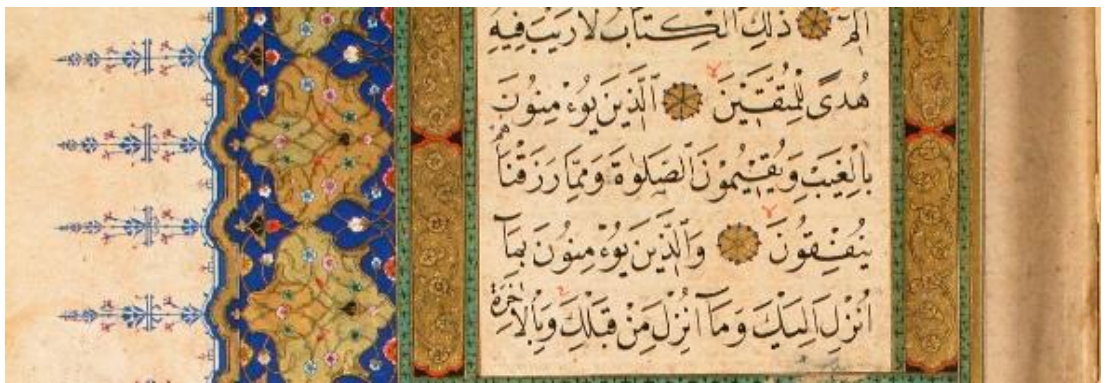 الٓمٓ ذٰلِكَ الْكِتَابُ لَا رَيْبَ فِيهِ
هُدًى لِلْمُتَّقِينَ الَّذِينَ يُؤْمِنُونَ
بِالْغَيْبِ وَيُقِيمُونَ الصَّلٰوةَ وَمِمَّا رَزَقْنَاهُمْ
يُنْفِقُونَ وَالَّذِينَ يُؤْمِنُونَ بِمَا
اُنْزِلَ اِلَيْكَ وَمَا اُنْزِلَ مِنْ قَبْلِكَ وَبِالْاٰخِرَةِ